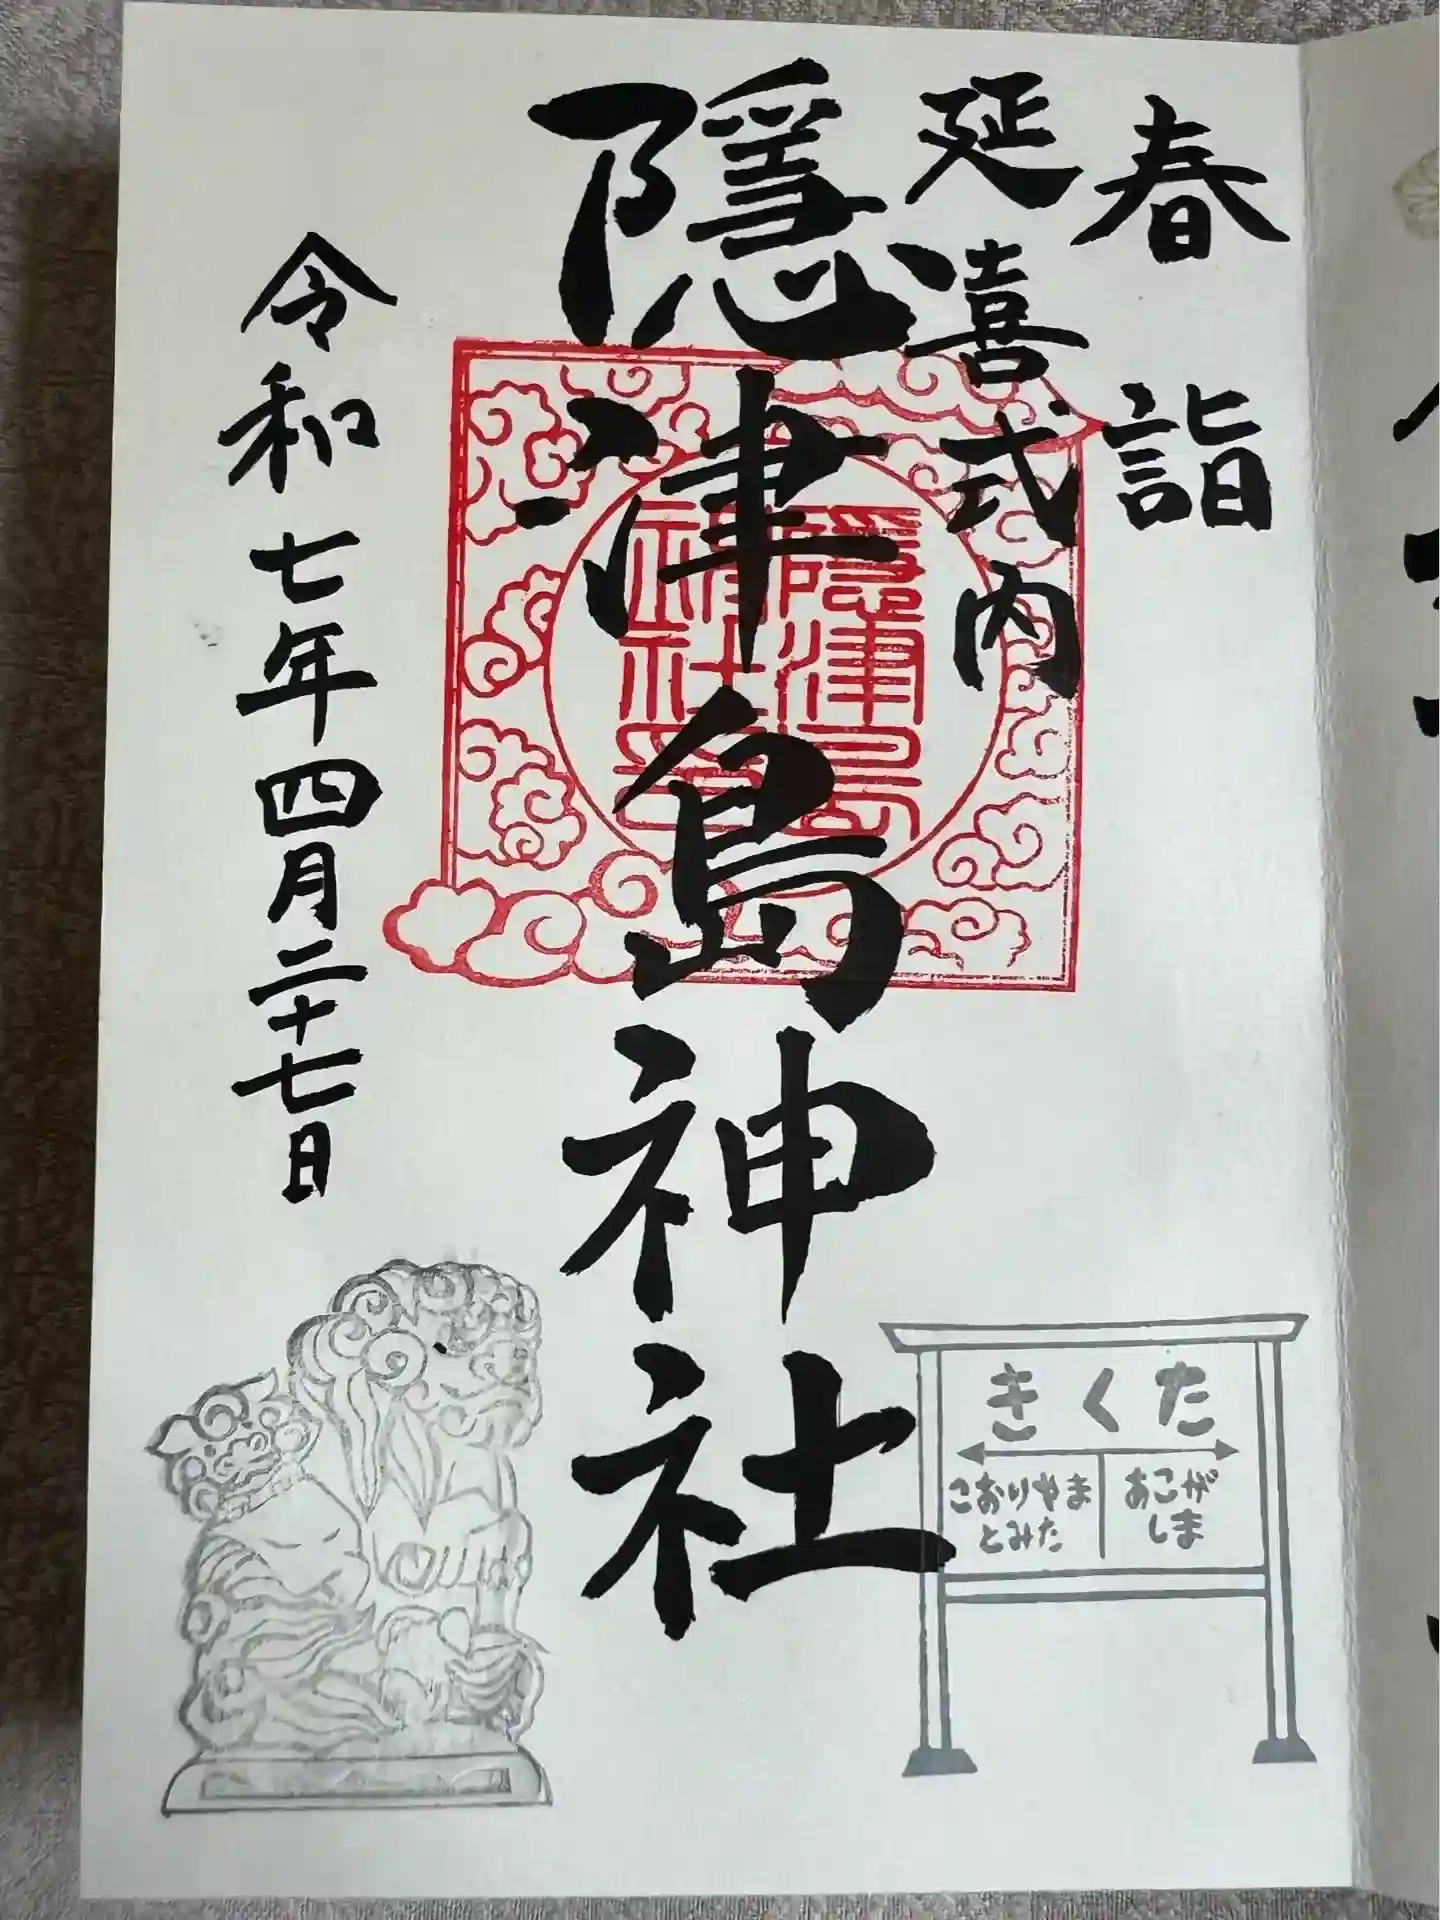 春詣
延喜式内
隠津島神社
隠津島
神社印
令和七年四月二十七日
きくた
こおりやま
とみた
あこが
しま